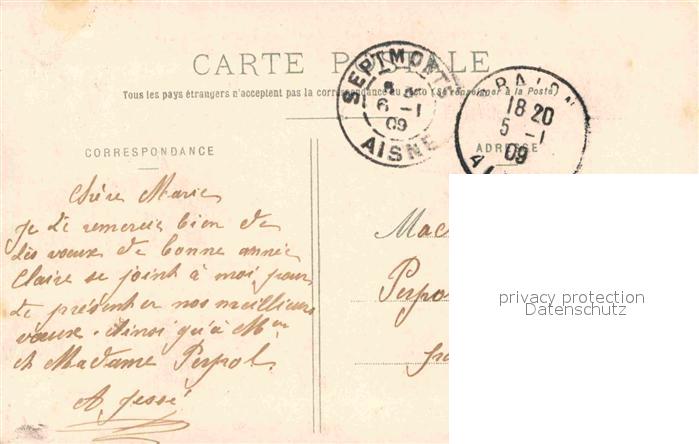 CARTE POSTALE
Tous les pays étrangers n'acceptent pas la correspondance au recto (Se renseigner à la Poste)
SEPTMONTS
6 -1
09
AISNE
18 20
5 -1
09
CORRESPONDANCE
ADRESSE
Chère Marie
Je te remercie bien de
tes voeux de bonne année
Claire se joint à moi pour
te présenter nos meilleurs
voeux. Ainsi qu'à Mr
et Madame Perpol.
A Jessé
Mad
Perpol
privacy protection
Datenschutz